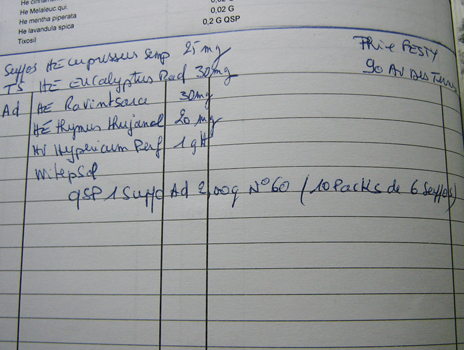 He Melaleuc.qui.
He mentha piperata
0,02 G
He lavandula spica
0,2 G QSP
Tixosil
Suppos HE cupressus semp 25 mg
TS HE Eucalyptus Rad 30mg
Ad HE Ravintsara 30mg
HE thymus thujanol 20 mg
HV Hypericum Perf 1 gtt
Witepsol
QSP 1 Suppo Ad 2,00g N°60 (10 Packs de 6 Suppos)
Phie FESTY
90 Av Des Ternes